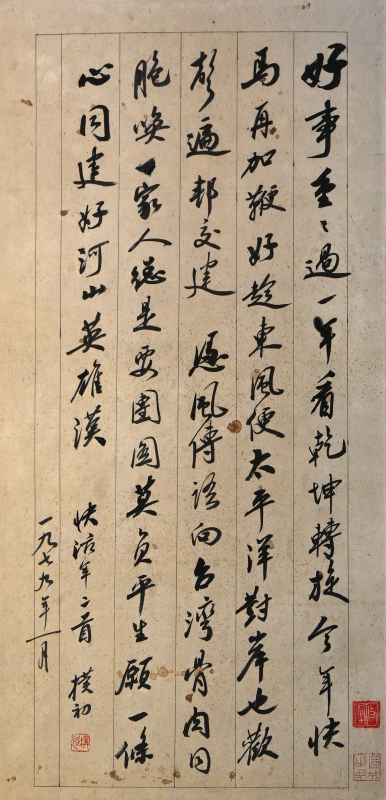 好事重重過一年看乾坤轉旋今年快
馬再加鞭好趁東風便太平洋對岸也歡
聲遍邦交建 憑風傳語向台灣骨肉同
胞喚一家人總是要團圓莫負平生願一條
心同建好河山英雄漢
快活年二首 樸初
一九七九年一月